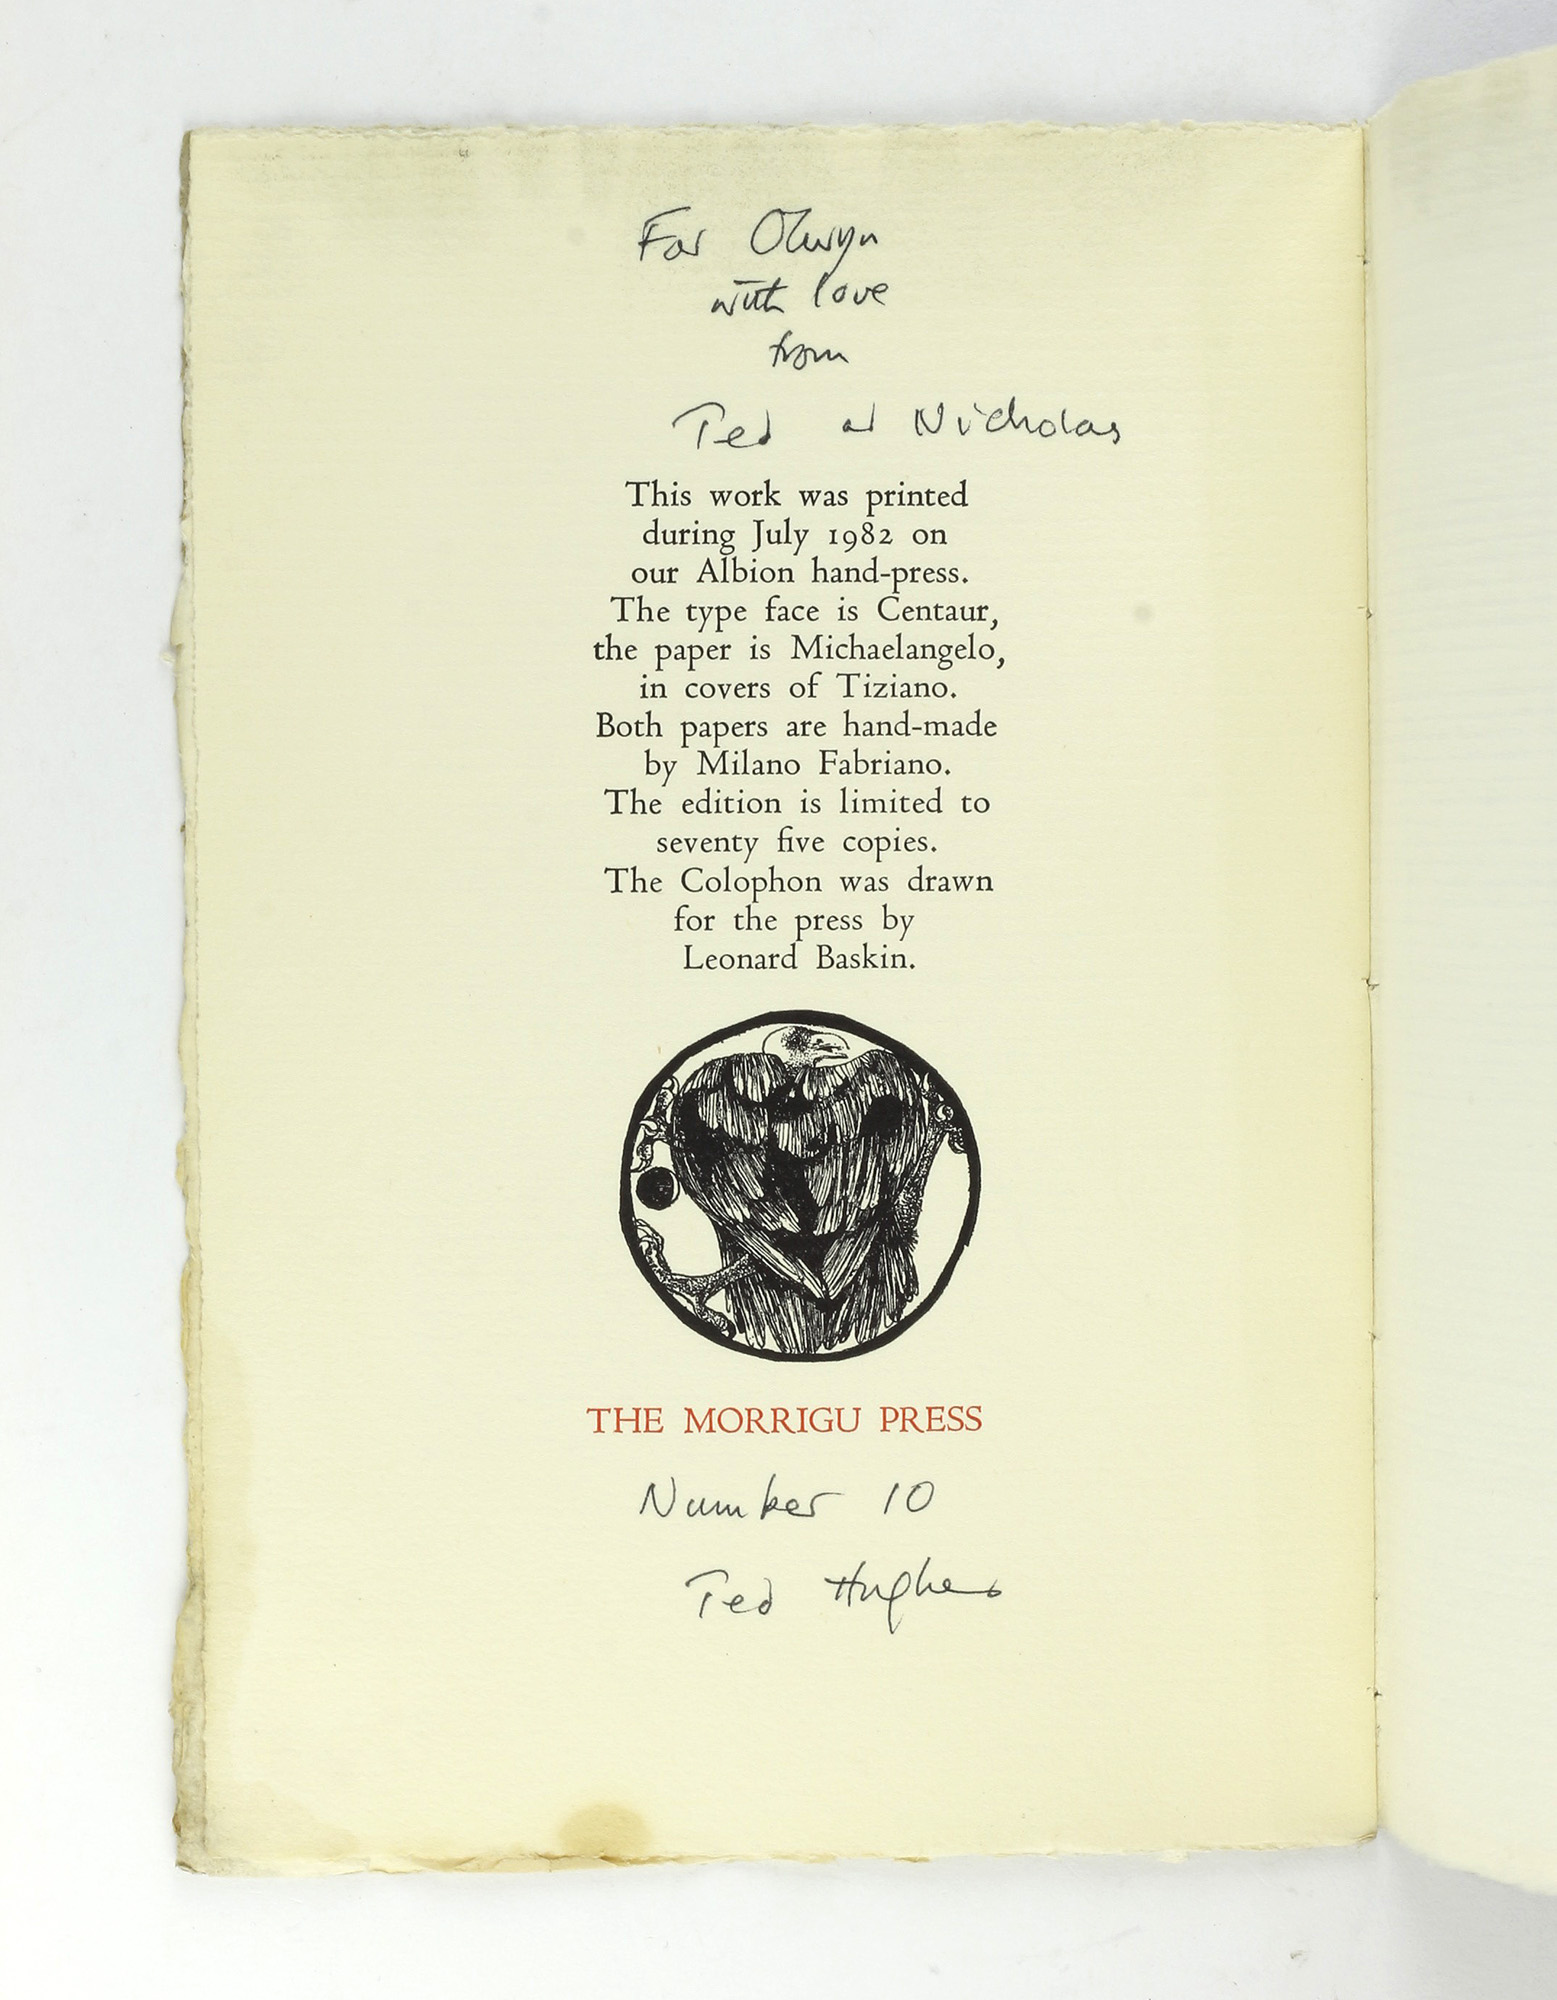 For Olwyn
with love
from
Ted and Nicholas
This work was printed
during July 1982 on
our Albion hand-press.
The type face is Centaur,
the paper is Michaelangelo,
in covers of Tiziano.
Both papers are hand-made
by Milano Fabriano.
The edition is limited to
seventy five copies.
The Colophon was drawn
for the press by
Leonard Baskin.
THE MORRIGU PRESS
Number 10
Ted Hughes